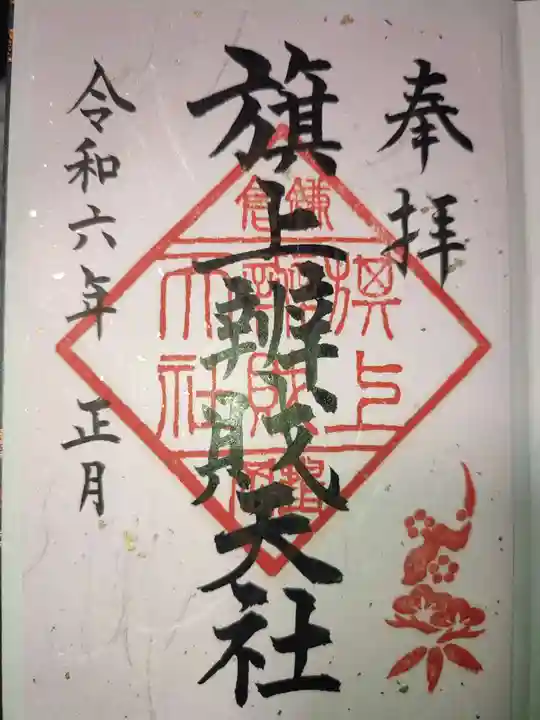 奉拝
旗上辨財天社
鎌倉
旗上
辨財
天社
令和六年 正月